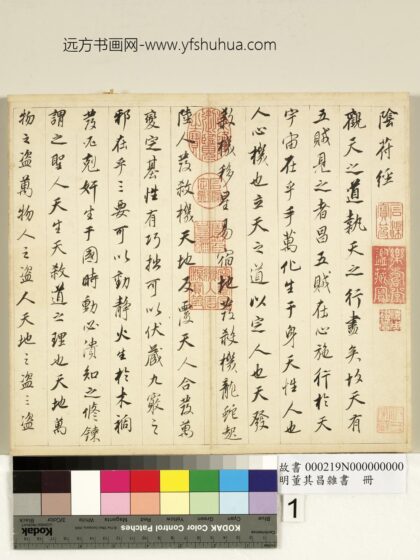 远方书画网-www.yfshuhua.com
陰符經
觀天之道執天之行盡矣故天有
五賊見之者昌五賊在心施行於天
宇宙在乎手萬化生于身天性人也
人心機也立天之道以定人也天發
殺機移星易宿地發殺機龍蛇起
陸人發殺機天地反覆天人合發萬
變定基性有巧拙可以伏藏九竅之
邪在乎三要可以動靜火生於木禍
發必剋奸生于國時動必潰知之修鍊
謂之聖人天生天殺道之理也天地萬
物之盜萬物人之盜人天地之盜三盜
故書 000219N000000000
明董其昌雜書 冊
1
KODAK Color Control Patches
Blue Cyan Green Yellow Red Magenta White 3/Color Black